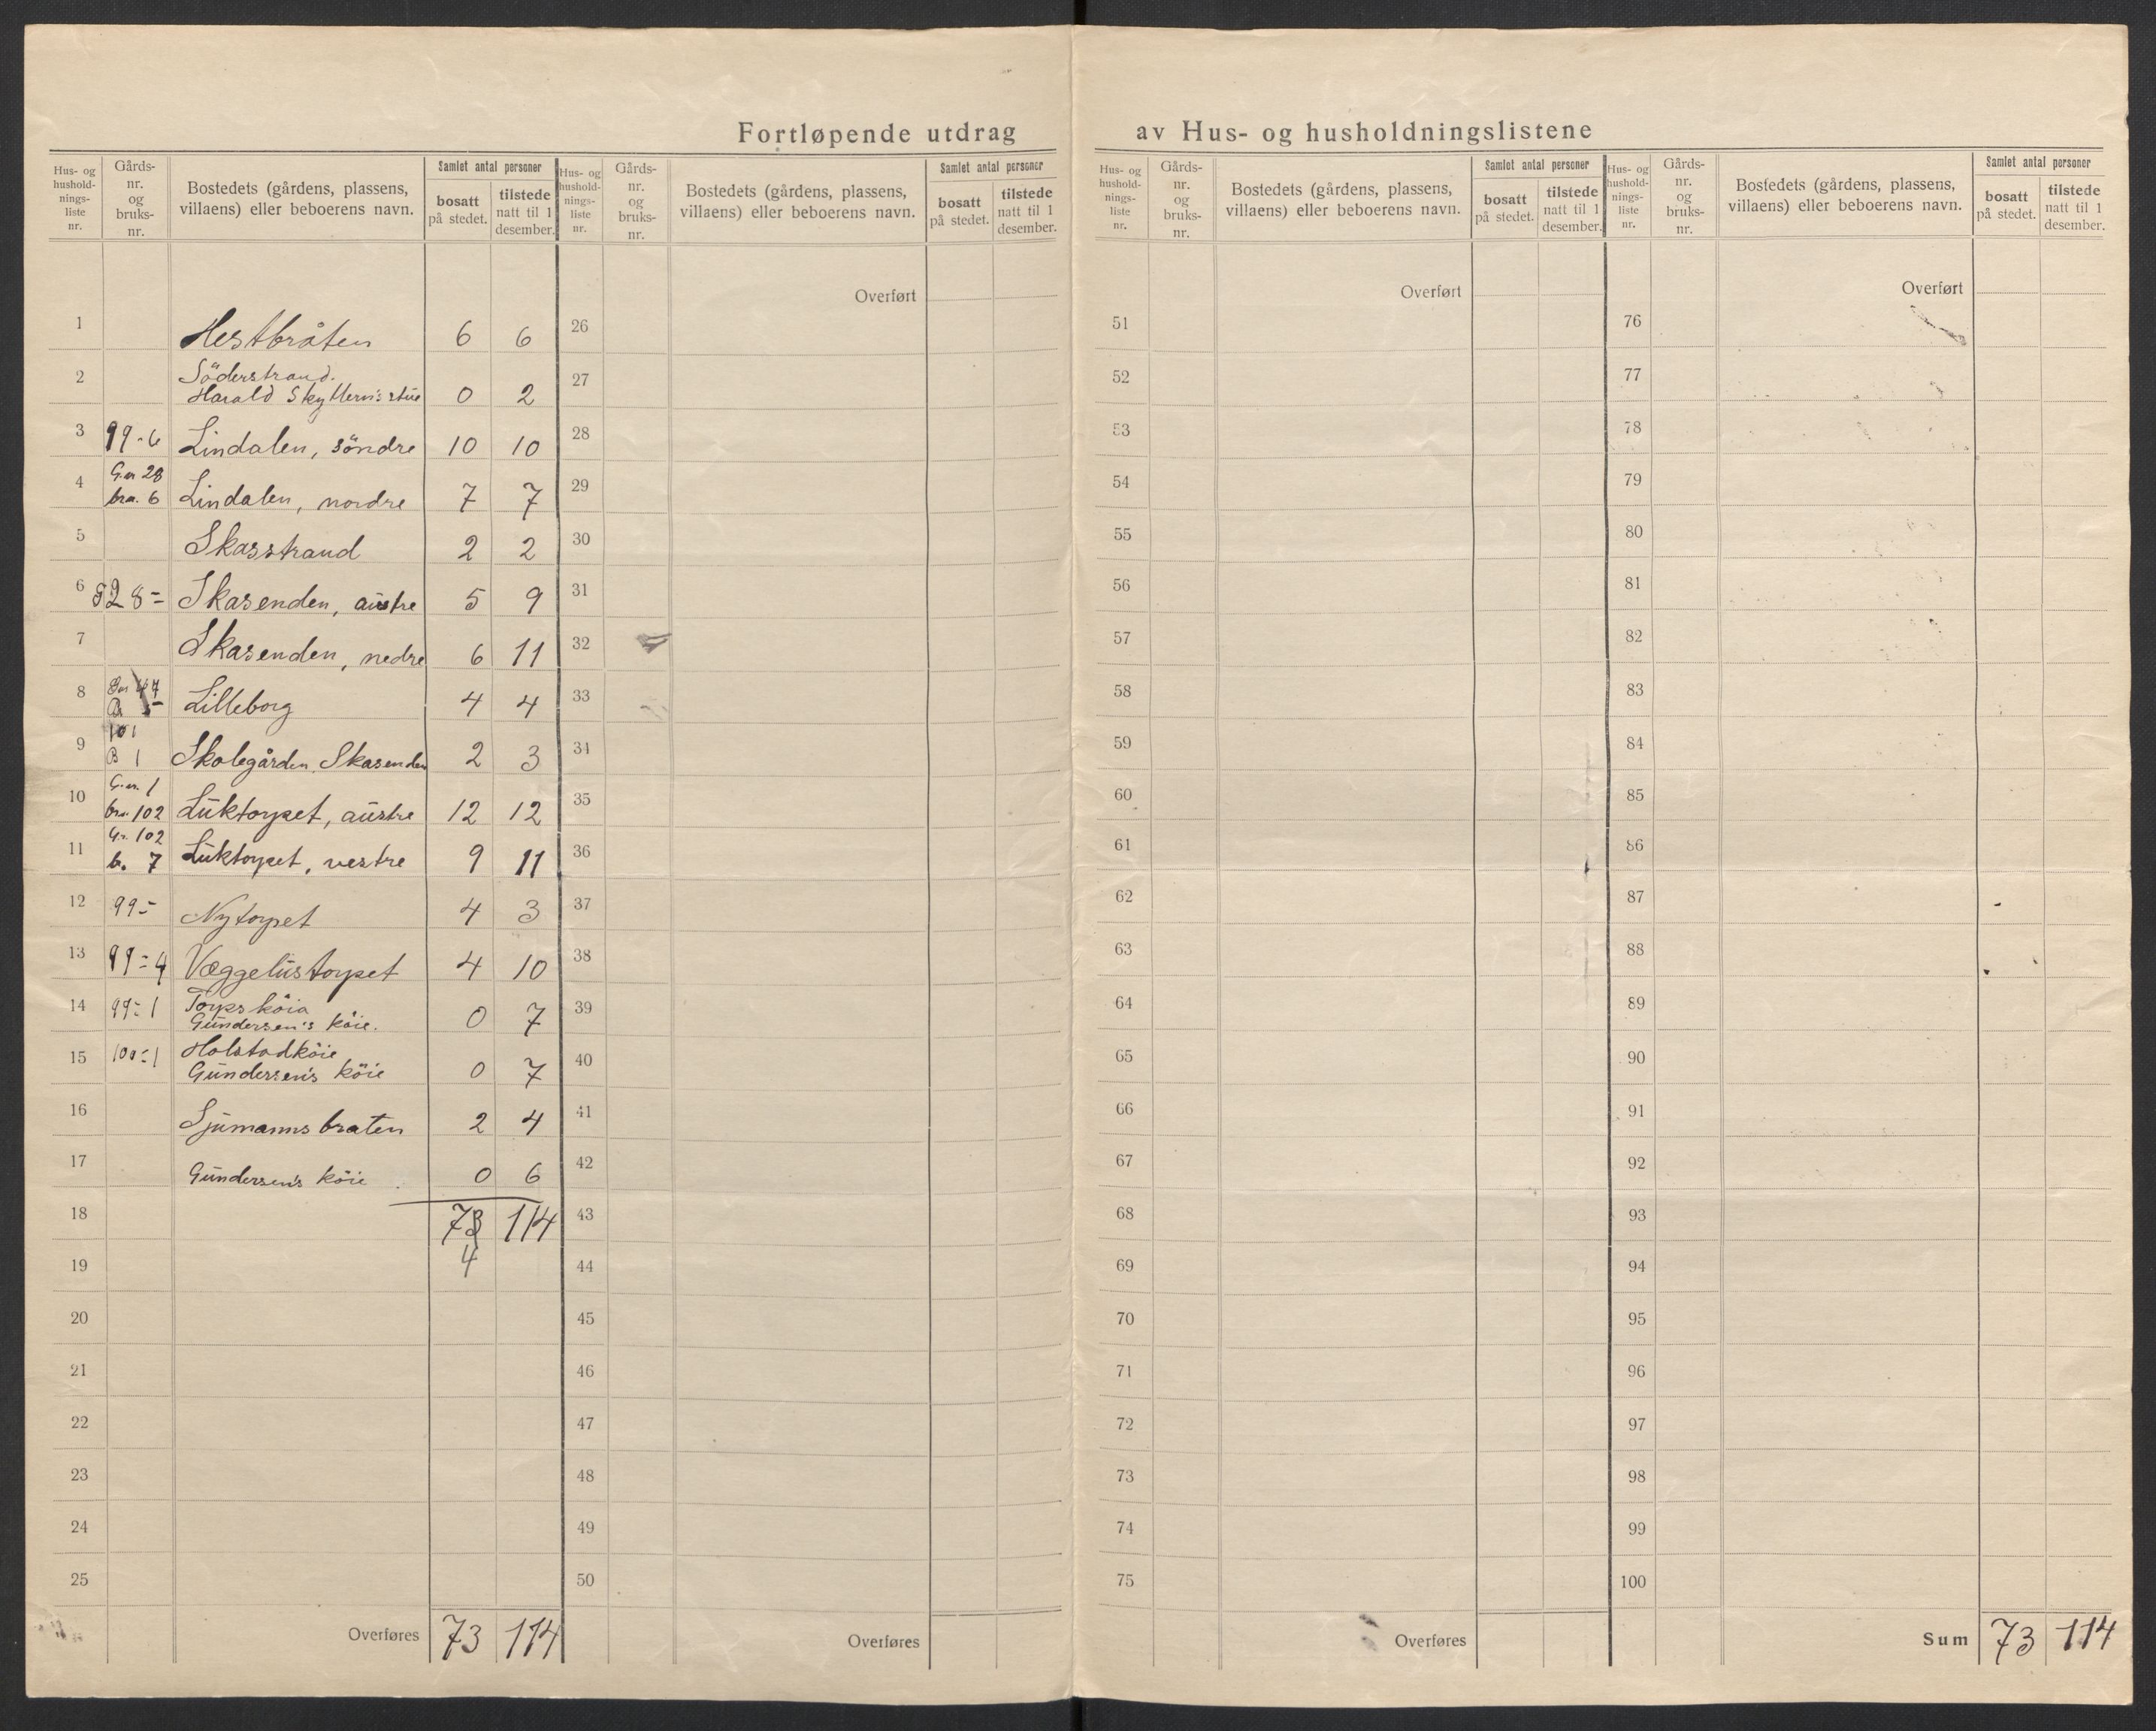 Fortløpende utdrag av Hus- og husholdningslistene
Hus- og hushold-nings-liste nr. Gårds-nr. og bruks-nr. Bostedets (gårdens, plassens, villaens) eller beboerens navn. Samlet antal personer bosatt på stedet. tilstede natt til 1 desember.
1 Hestbråten 6 6
2 Söderstrand.
Harald stue 0 2
3 99-6 Lindalen, söndre 10 10
4 G.nr 28
bra. 6 Lindalen, nordre 7 7
5 Skasstrand 2 2
6 28- Skasenden, austre 5 9
7 Skasenden, nedre 6 11
8 Lilleborg 4 4
9 101
B 1 Skolegården Skasenden 2 3
10 G.nr. 1
bra. 102 Luktorpet, austre 12 12
11 Gr. 102
br. 7 Luktorpet, vestre 9 11
12 99- Nytorpet 4 3
13 99-4 Væggelustorpet 4 10
14 99-1 Torpsköia
Gundersen's köie. 0 7
15 100-1 Holstadköie
Gundersen's köie 0 7
16 Sjumannsbraten 2 4
17 Gundersen's köie 0 6
18 73 114
19 4
20
21
22
23
24
25
Overføres 73 114
Hus- og hushold-nings-liste nr. Gårds-nr. og bruks-nr. Bostedets (gårdens, plassens, villaens) eller beboerens navn. Samlet antal personer bosatt på stedet. tilstede natt til 1 desember.
Overført
26
27
28
29
30
31
32
33
34
35
36
37
38
39
40
41
42
43
44
45
46
47
48
49
50
Overføres
Hus- og hushold-nings-liste nr. Gårds-nr. og bruks-nr. Bostedets (gårdens, plassens, villaens) eller beboerens navn. Samlet antal personer bosatt på stedet. tilstede natt til 1 desember.
Overført
51
52
53
54
55
56
57
58
59
60
61
62
63
64
65
66
67
68
69
70
71
72
73
74
75
Overføres
Hus- og hushold-nings-liste nr. Gårds-nr. og bruks-nr. Bostedets (gårdens, plassens, villaens) eller beboerens navn. Samlet antal personer bosatt på stedet. tilstede natt til 1 desember.
Overført
76
77
78
79
80
81
82
83
84
85
86
87
88
89
90
91
92
93
94
95
96
97
98
99
100
Sum 73 114